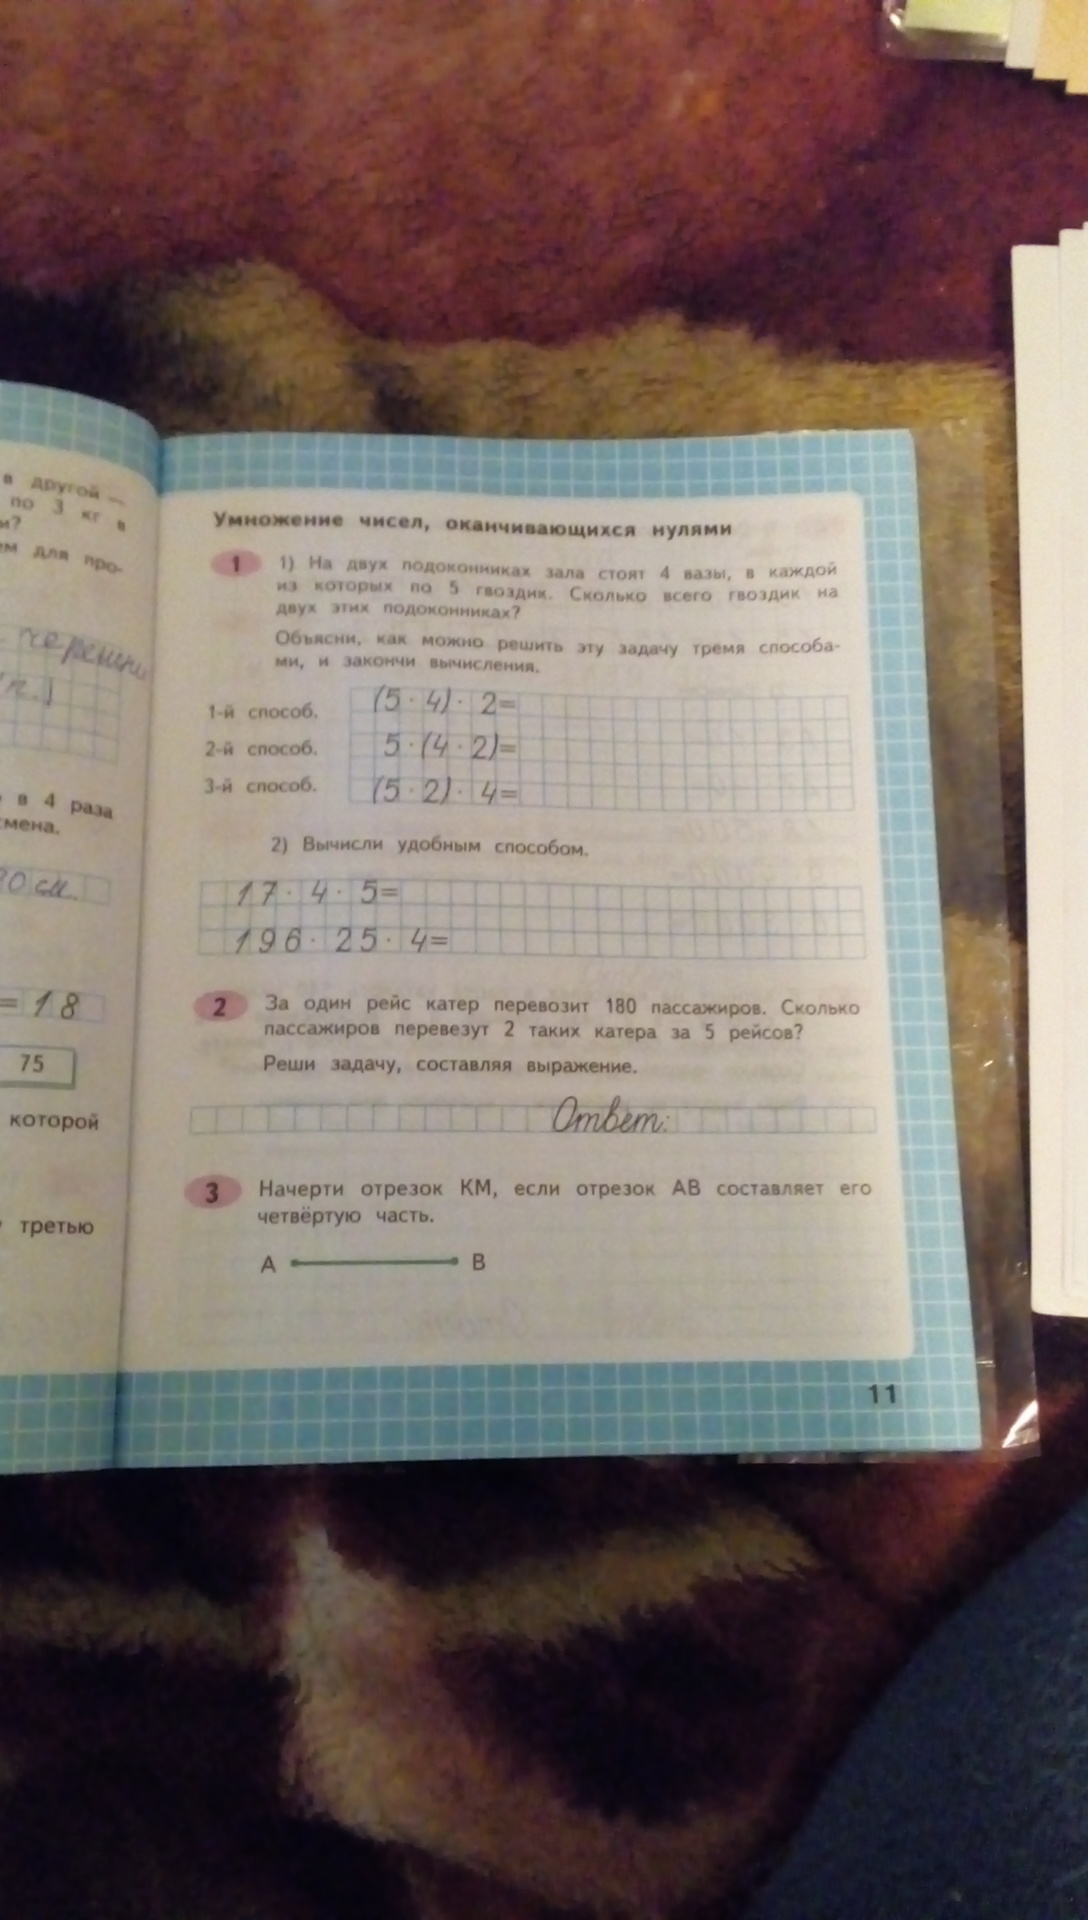 в другой —
по 3 кг в
и?
ем для про-
черешни
= 18
75
которой
третью
в 4 раза
смена.
80 см.
Умножение чисел, оканчивающихся нулями
1 1) На двух подоконниках зала стоят 4 вазы, в каждой
из которых по 5 гвоздик. Сколько всего гвоздик на
двух этих подоконниках?
Объясни, как можно решить эту задачу тремя способа-
ми, и закончи вычисления.
1-й способ. (5 · 4) · 2=
2-й способ. 5 · (4 · 2)=
3-й способ. (5 · 2) · 4=
2) Вычисли удобным способом.
17 · 4 · 5=
196 · 25 · 4=
2 За один рейс катер перевозит 180 пассажиров. Сколько
пассажиров перевезут 2 таких катера за 5 рейсов?
Реши задачу, составляя выражение.
Ответ:
3 Начерти отрезок КМ, если отрезок АВ составляет его
четвёртую часть.
А В
11